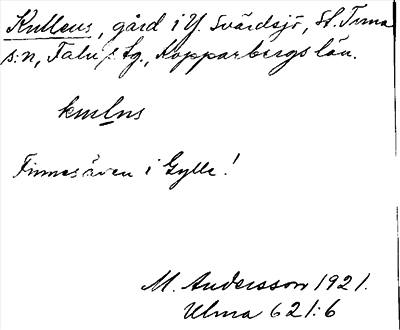 Knllens, gård i Y. Svärdsjö, St. Tuna
s:n, Falu f. fg., Kopparbergs län.
Finnes även i Gylle!
M. Andersson 1921.
Ulma 621:6